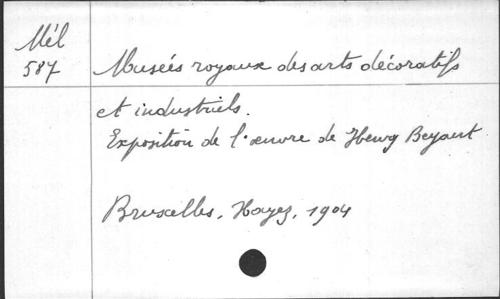 Mél
587
Musées royaux des arts décoratifs
et industriels.
Exposition de l'œuvre de Henry Beyaert
Bruxelles, Hayez, 1904